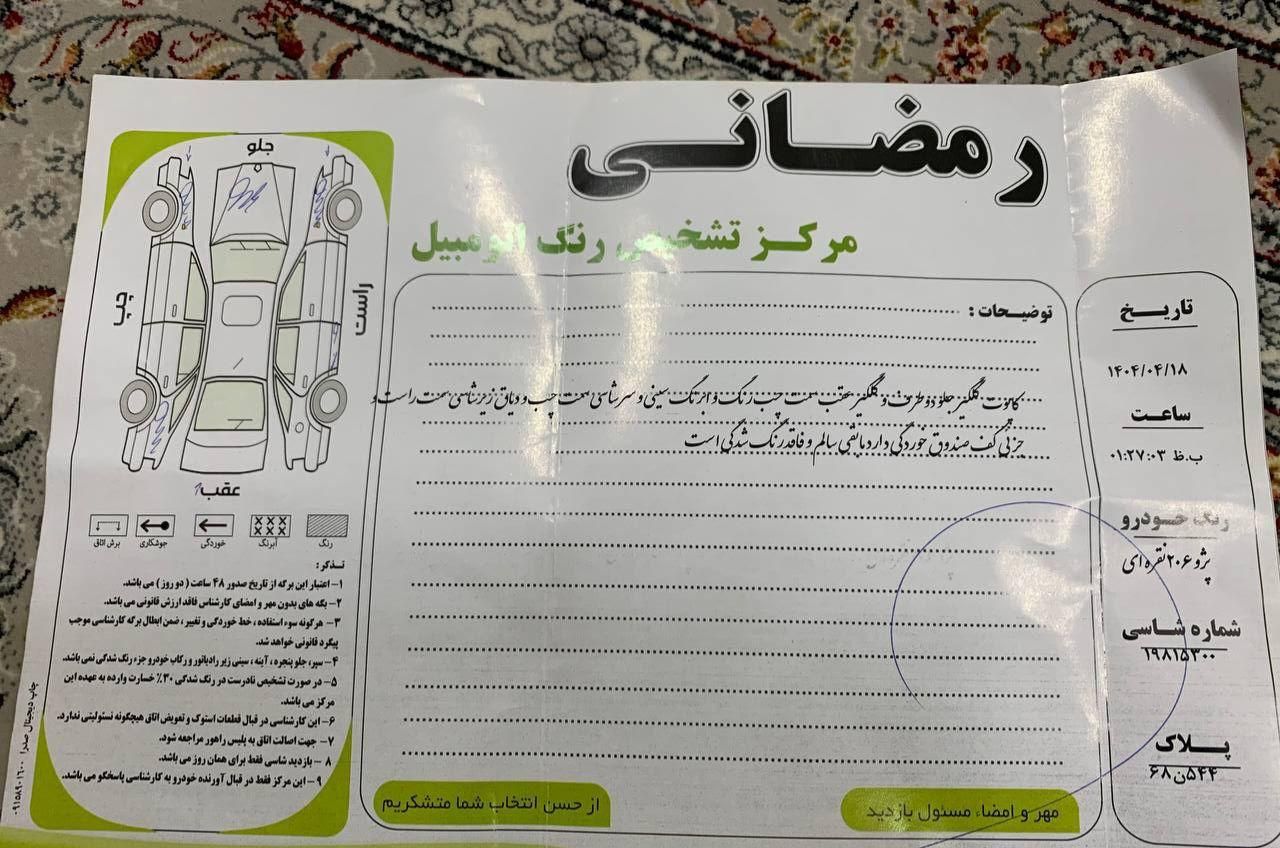 رمضانی
مرکز تشخیص رنگ اتومبیل
تاریخ
۱۴۰۴/۰۴/۱۸
ساعت
۰۱:۲۷:۰۳ ب.ظ
رنگ خودرو
پژو ۲۰۶ نقره ای
شماره شاسی
۱۹۸۱۵۳۰۰
پلاک
۵۴۴ن۶۸
توضیحات :
کاپوت گلگیر جلو دو طرف و گلگیر عقب سمت چپ رنگ و اثر تک سینی و سر شاسی سمت چپ و دیاق زیر شاسی سمت راست و
جزئی کف صندوق خوردگی دارد مابقی سالم و فاقد رنگ شدگی است
مهر و امضاء مسئول بازدید
از حسن انتخاب شما متشکریم
جلو
چپ
راست
عقب
رنگ
آبرنگ
خوردگی
جوشکاری
برش اتاق
تذکر :
۱- اعتبار این برگه از تاریخ صدور ۴۸ ساعت ( دو روز ) می باشد.
۲- بگه های بدون مهر و امضای کارشناس فاقد ارزش قانونی می باشد.
۳- هرگونه سوء استفاده ، خط خوردگی و تغییر ، ضمن ابطال برگه کارشناسی موجب
پیگرد قانونی خواهد شد.
۴- سپر، جلو پنجره ، آینه ، سینی زیر رادیاتور و رکاب خودرو جزء رنگ شدگی نمی باشد.
۵- در صورت تشخیص نادرست در رنگ شدگی ۳۰٪ خسارت وارده به عهده این
مرکز می باشد.
۶- این کارشناسی در قبال قطعات استوک و تعویض اتاق هیچگونه مسئولیتی ندارد.
۷- جهت اصالت اتاق به پلیس راهور مراجعه شود.
۸- بازدید شاسی فقط برای همان روز می باشد.
۹- این مرکز فقط در قبال آورنده خودرو به کارشناسی پاسخگو می باشد.
چاپ دیجیتال صدرا